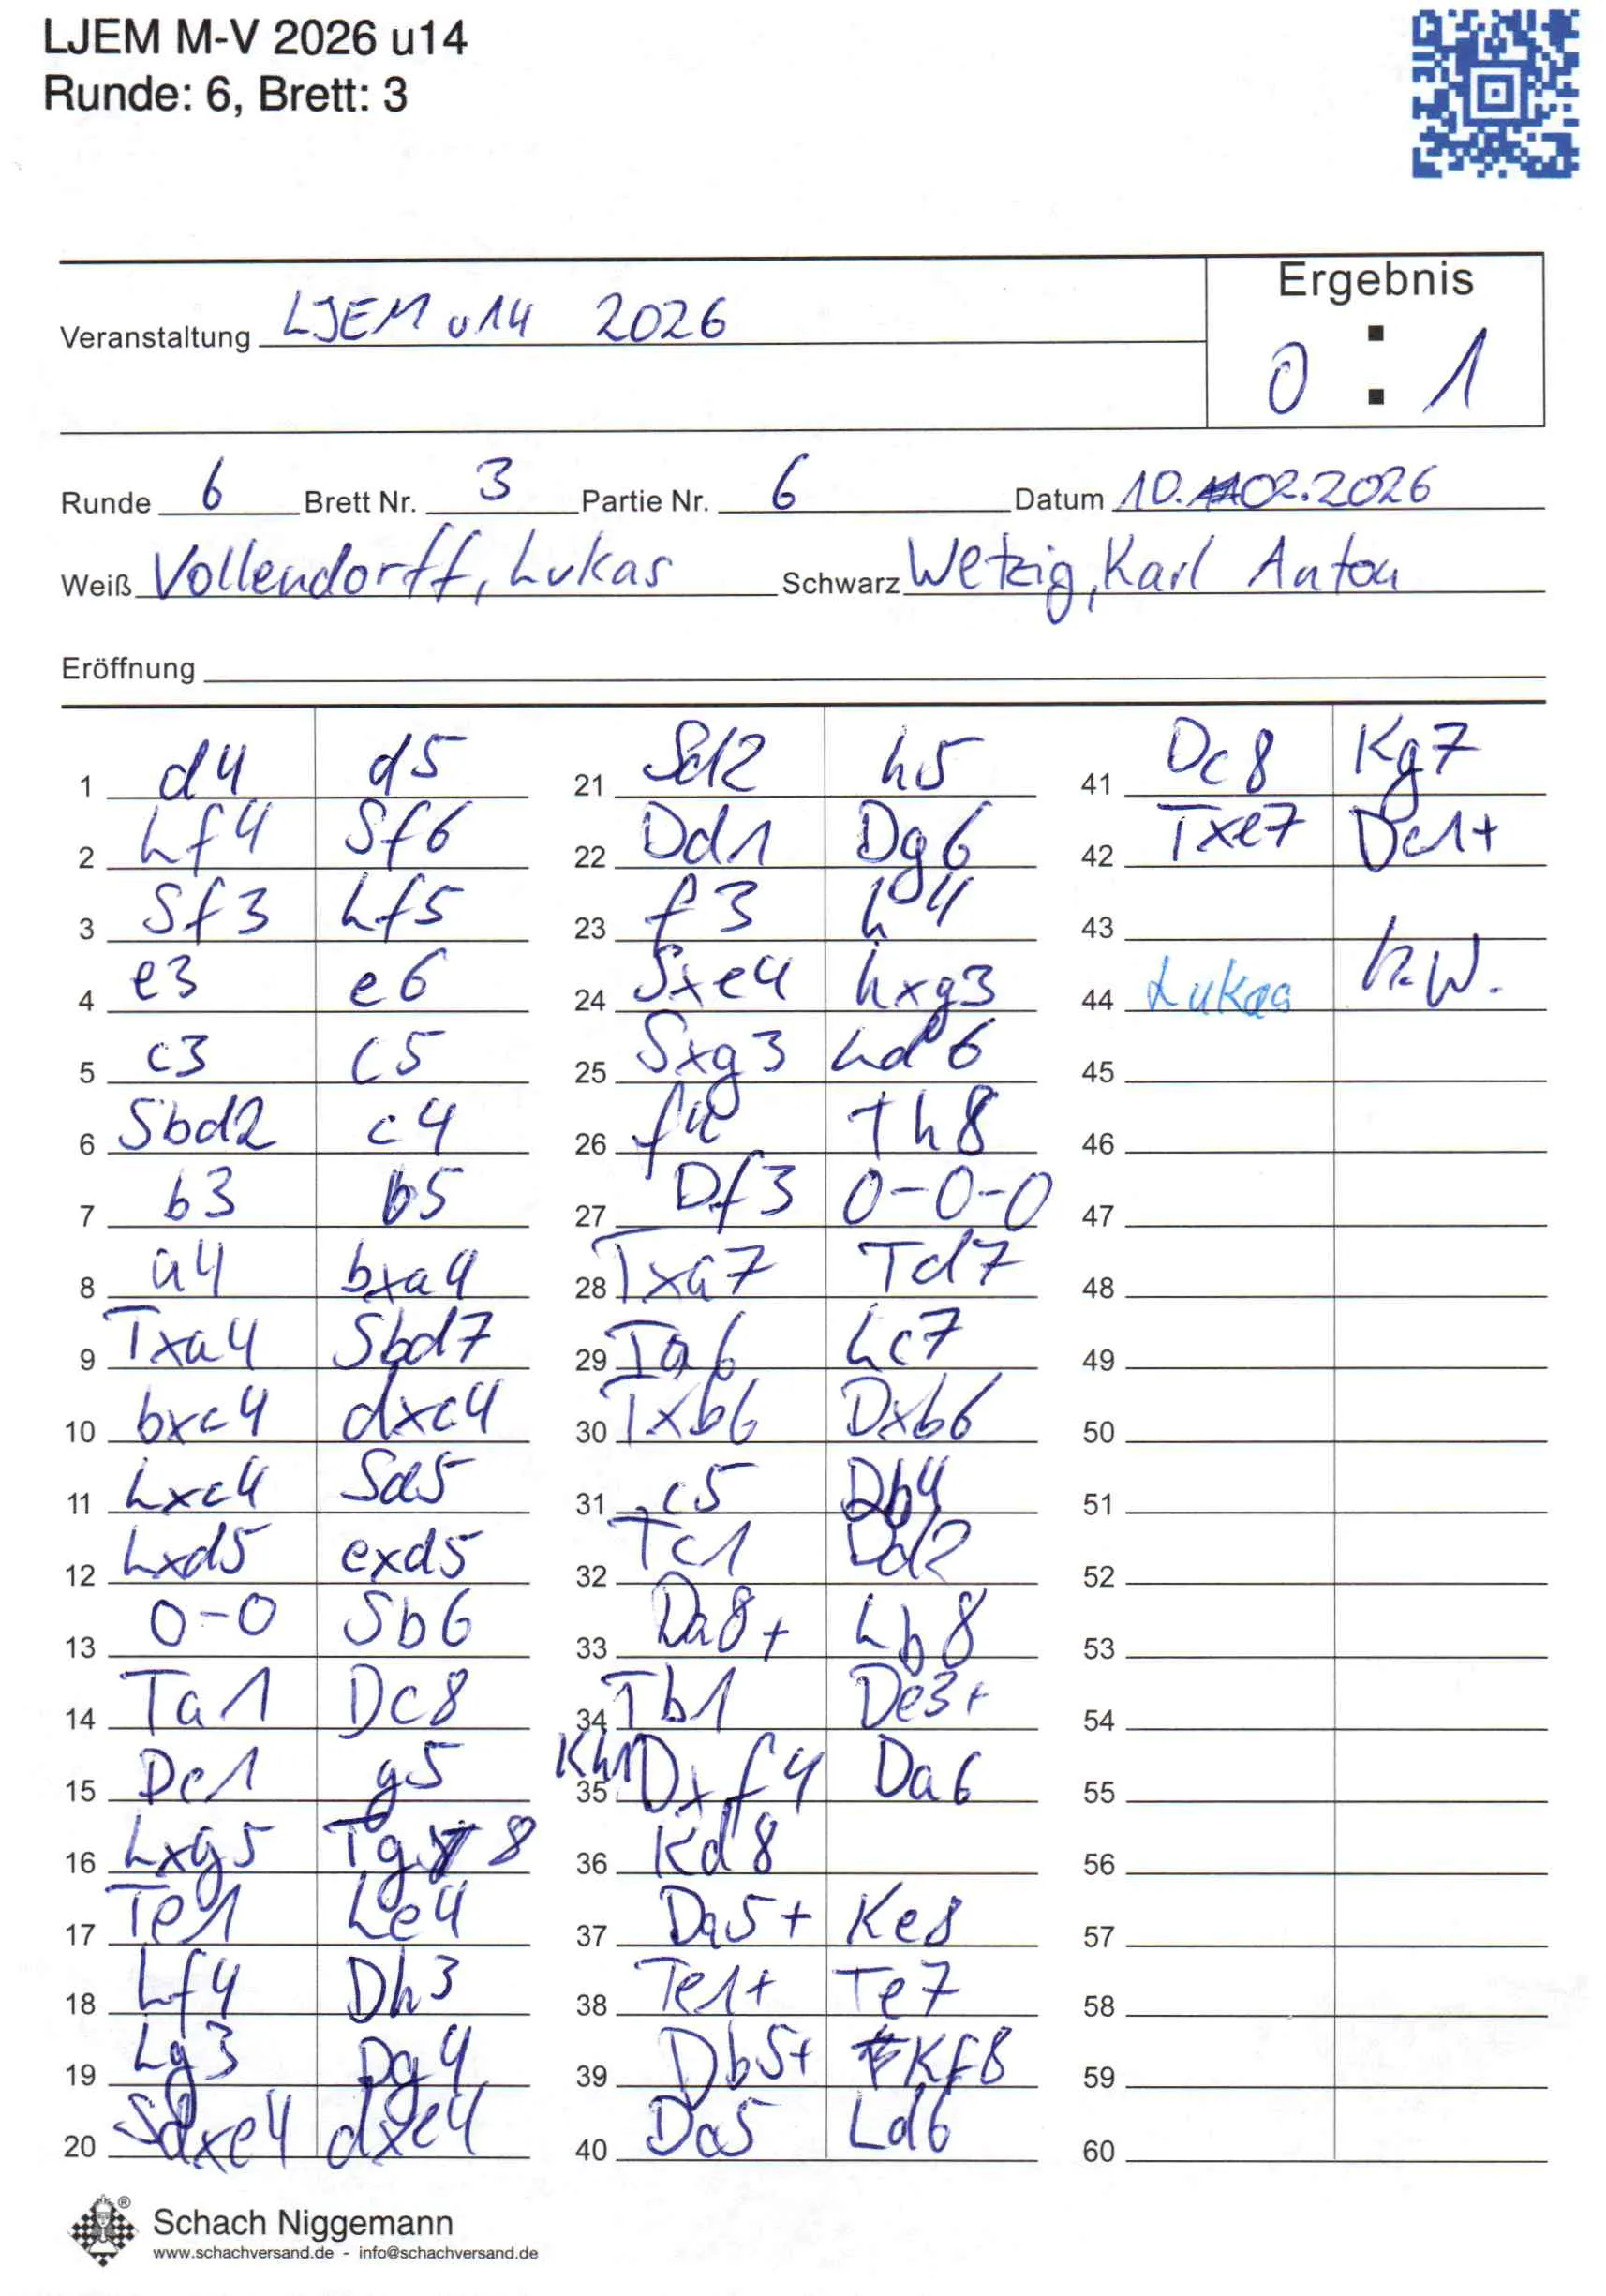 LJEM M-V 2026 u14
Runde: 6, Brett: 3
Ergebnis
Veranstaltung LJEM u14 2026
0 : 1
Runde 6 Brett Nr. 3 Partie Nr. 6 Datum 10.02.2026
Weiß Vollendorff, Lukas Schwarz Wetzig, Karl Anton
Eröffnung
1 d4 d5
2 Lf4 Sf6
3 Sf3 Lf5
4 e3 e6
5 c3 c5
6 Sbd2 c4
7 b3 b5
8 a4 bxa4
9 Txa4 Sbd7
10 bxc4 dxc4
11 Lxc4 Sd5
12 Lxd5 exd5
13 0-0 Sb6
14 Ta1 Dc8
15 De1 g5
16 Lxg5 Tg8
17 Te1 Le4
18 Lf4 Dh3
19 Lg3 Dg4
20 Sdxe4 dxe4
21 Sd2 h5
22 Dd1 Dg6
23 f3 h4
24 Sxe4 hxg3
25 Sxg3 Ld6
26 f4 Th8
27 Df3 0-0-0
28 Txa7 Td7
29 Ta6 Lc7
30 Txb6 Dxb6
31 c5 Db4
32 Tc1 Dd2
33 Da8+ Lb8
34 Tb1 De3+
35 Kh1 Dxf4 Da6
36 Kd8
37 Da5+ Ke8
38 Te1+ Te7
39 Db5+ Kf8
40 Da5 Ld6
41 Dc8 Kg7
42 Txe7 Dc1+
43
44 Lukas K.W.
45
46
47
48
49
50
51
52
53
54
55
56
57
58
59
60
Schach Niggemann
www.schachversand.de - info@schachversand.de